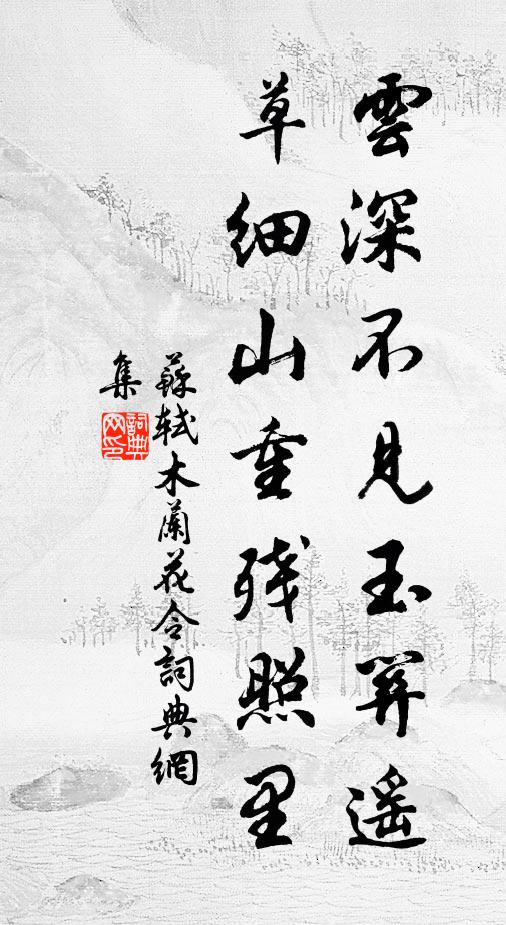 雲深不見玉關遥
草細山重残照里
蘇軾木蘭花令詞典網
集
詞典
网印